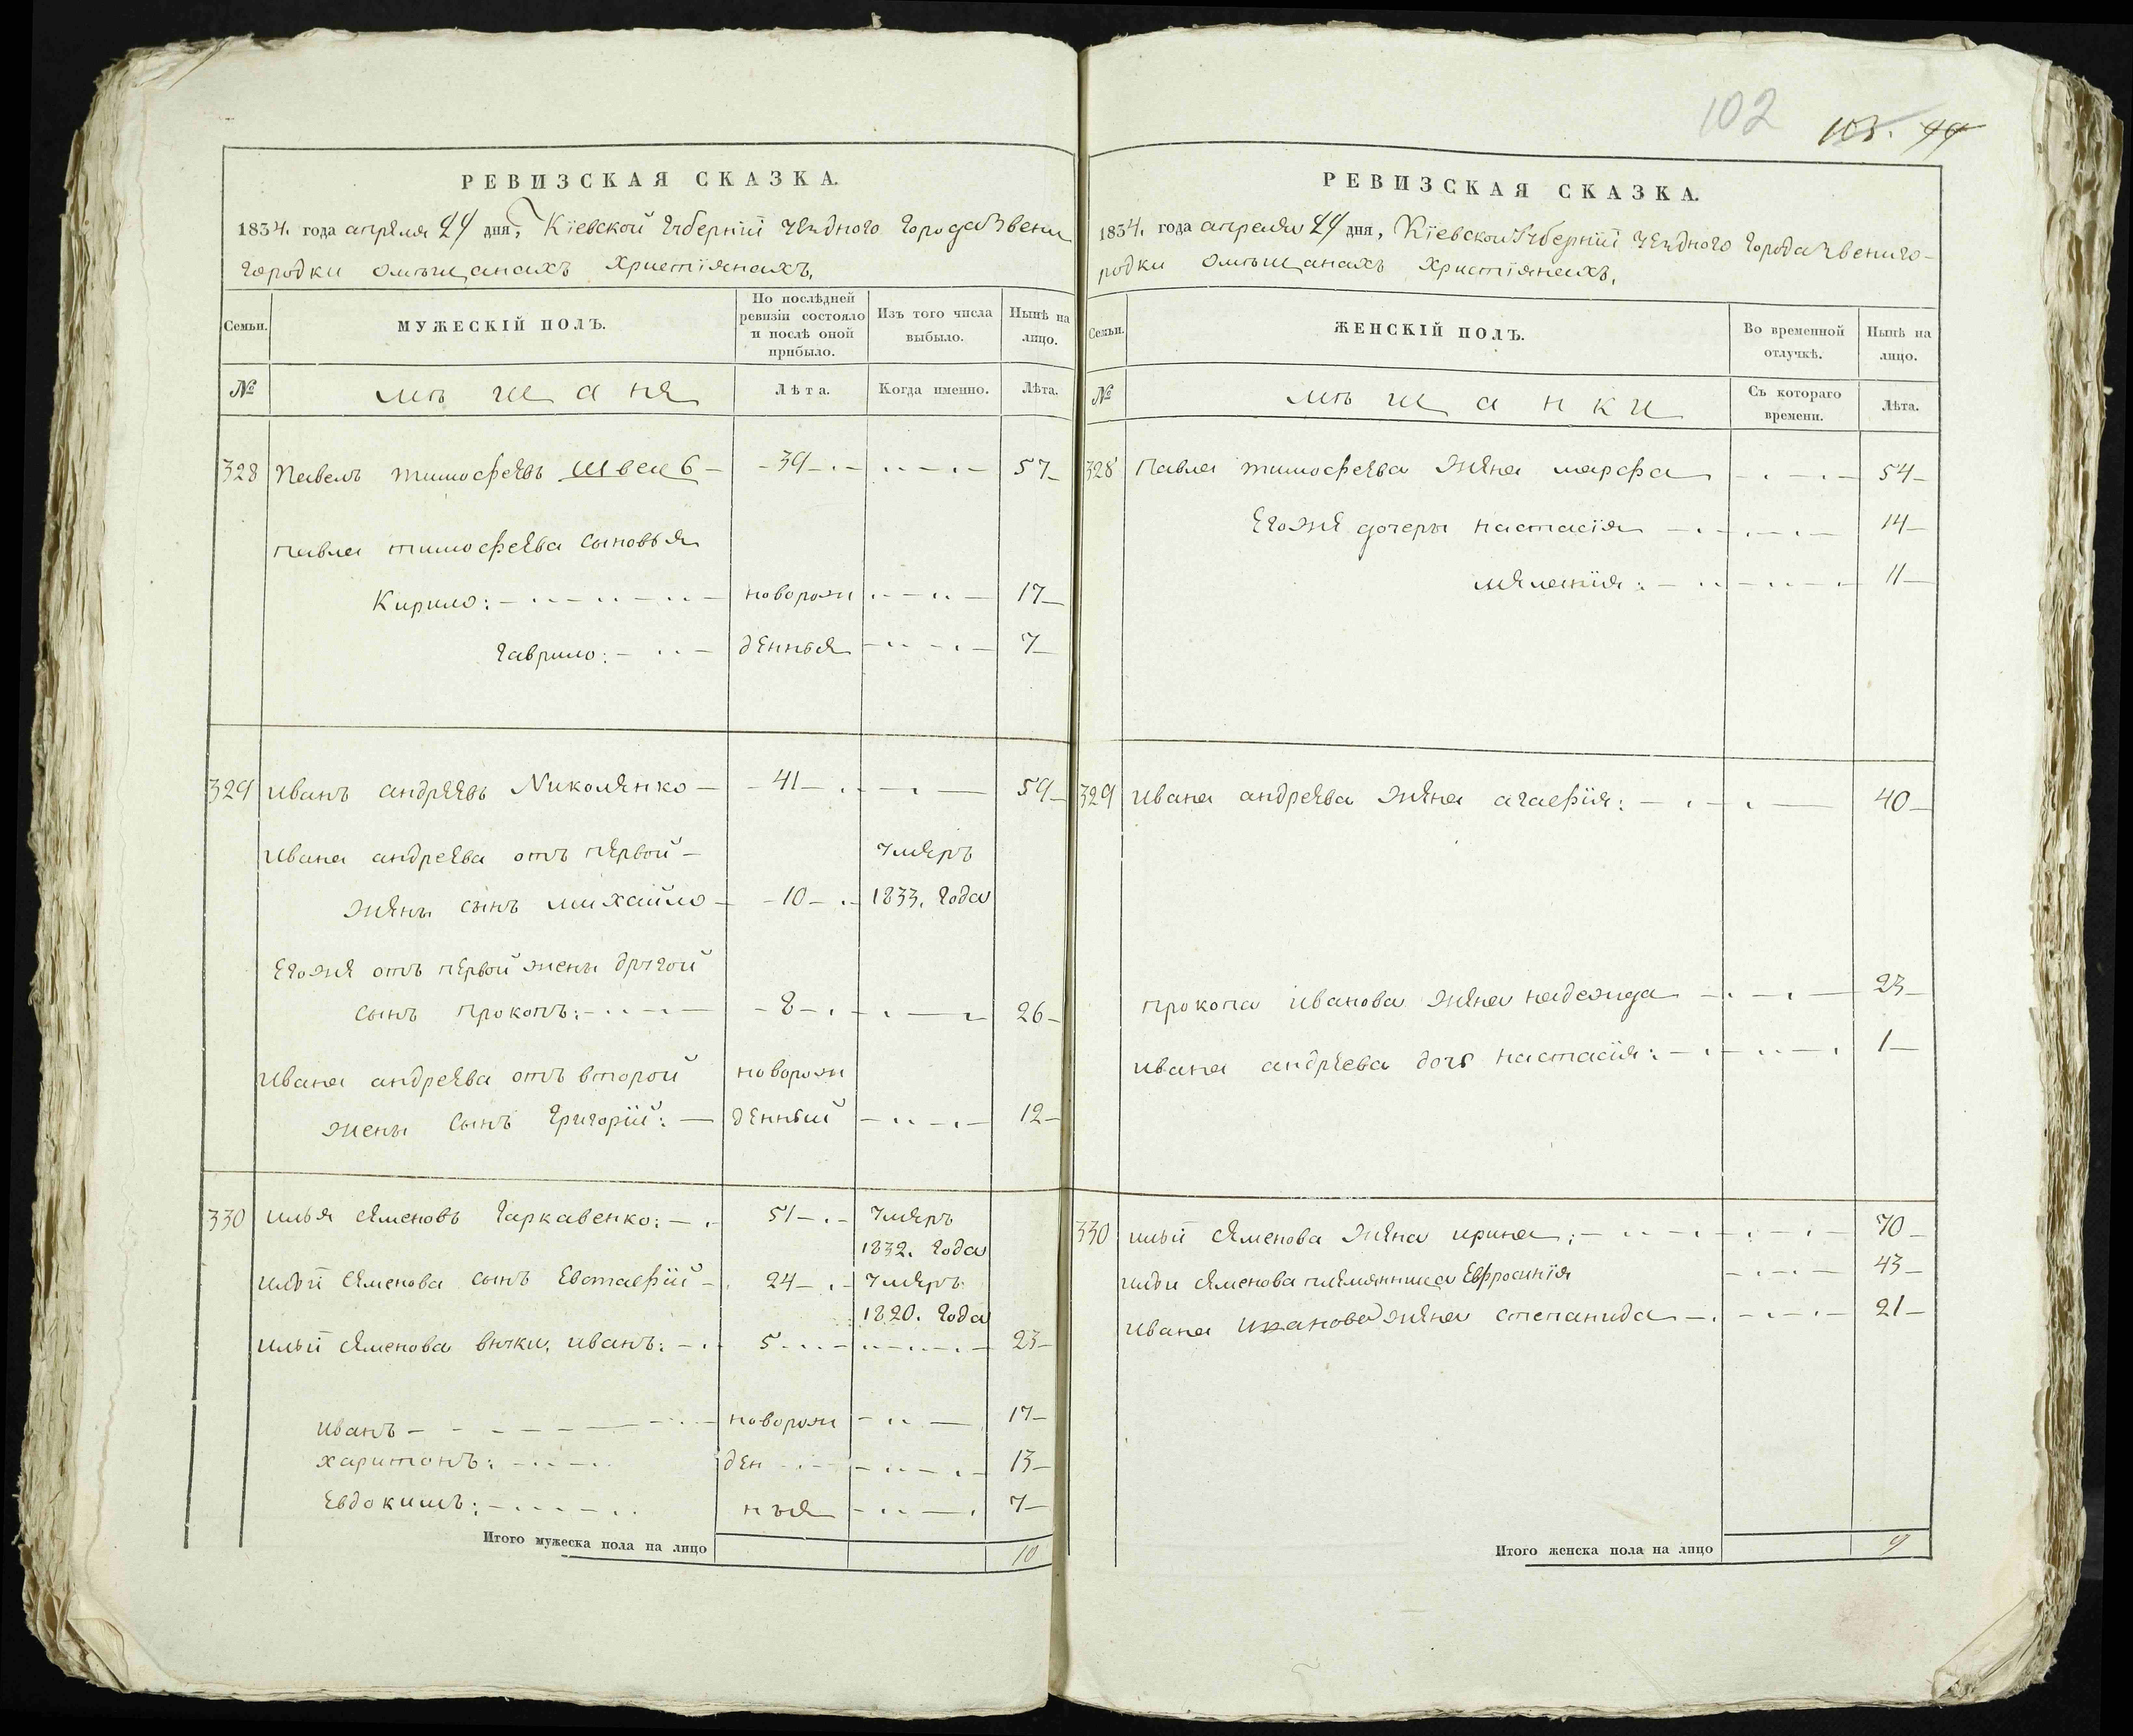 РЕВИЗСКАЯ СКАЗКА.
1834. года апреля 24 дня, Кїевской Губернїй Уездного Города Звени
Городки омъщанахъ христїянахъ,
Семьи.
МУЖЕСКІЙ ПОЛЪ.
По послѣдней ревизіи состояло и послѣ оной прибыло.
Изъ того числа выбыло.
Нынѣ на лицо.
№
мъщаня
Лѣта.
Когда именно.
Лѣта.
328 Павелъ тимофеевъ Швец 6 39 57
павла тимофеева сыновья
Кирило: новорож 17
гаврило: денныя 7
329 Иванъ андреевъ Николенко 41 59
Ивана андреева отъ первой умеръ
жены сынъ михайло 10 1833. года
егоже отъ первой жены другой
сынъ прокопъ: 8 26
Ивана андреева отъ второй новорож
жены сынъ Григорїй: денный 12
330 илья семеновъ Гаркавенко: 51 умеръ
1832. года
ильи семенова сынъ Евстафїй 24 умеръ
1820. года
ильи семенова внуки, иванъ: 5 23
иванъ новорож 17
харитонъ: ден 13
Евдокимъ: ныя 7
Итого мужеска пола на лицо 10
102
103. 99
РЕВИЗСКАЯ СКАЗКА.
1834. года апреля 24 дня, Кїевской Губернїй Уездного Города Звениго-
родки омъщанахъ христїянахъ,
Семьи.
ЖЕНСКІЙ ПОЛЪ.
Во временной отлучкѣ.
Нынѣ на лицо.
№
мъщанки
Съ котораго времени.
Лѣта.
328 Павла тимофеева жена марфа 54
Егоже дочери настасїя 14
меланїя: 11
329 Ивана андреева жена агафїя: 40
прокопа иванова жена надежда 23
ивана андреева дочь настасїя: 1
330 ильи семенова жена ирина: 70
ильи семенова племянница Евфросинїя 43
ивана иванова жена степанида 21
Итого женска пола на лицо 9